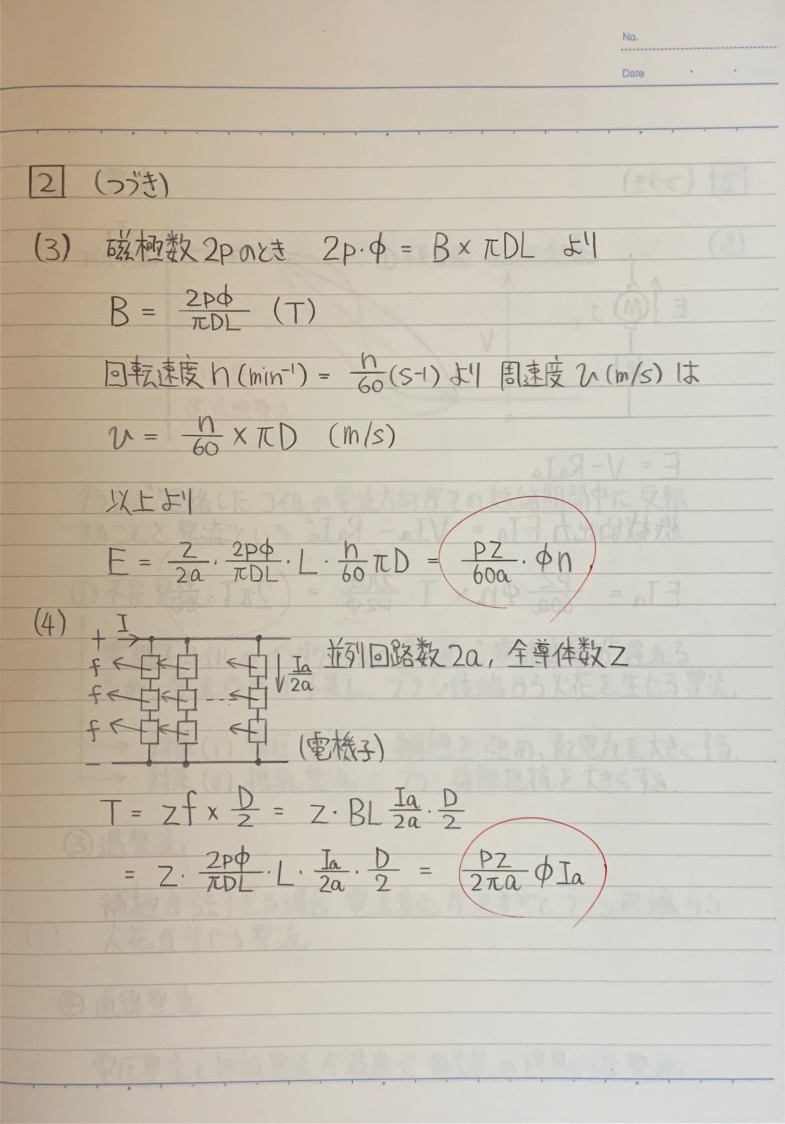 No.
Date
2 (つづき)
(3) 磁極数 2pのとき 2p・φ = B × πDL より
B = 2pφ/πDL (T)
回転速度 n (min⁻¹) = n/60 (s-1) より 周速度 v (m/s) は
v = n/60 × πD (m/s)
以上より
E = Z/2a · 2pφ/πDL · L · n/60 πD = pZ/60a · φn
(4)
+ I
f
f
f
-
Ia/2a
並列回路数 2a, 全導体数 Z
(電機子)
T = Zf × D/2 = Z · BL Ia/2a · D/2
= Z · 2pφ/πDL · L · Ia/2a · D/2 = pZ/2πa φIa